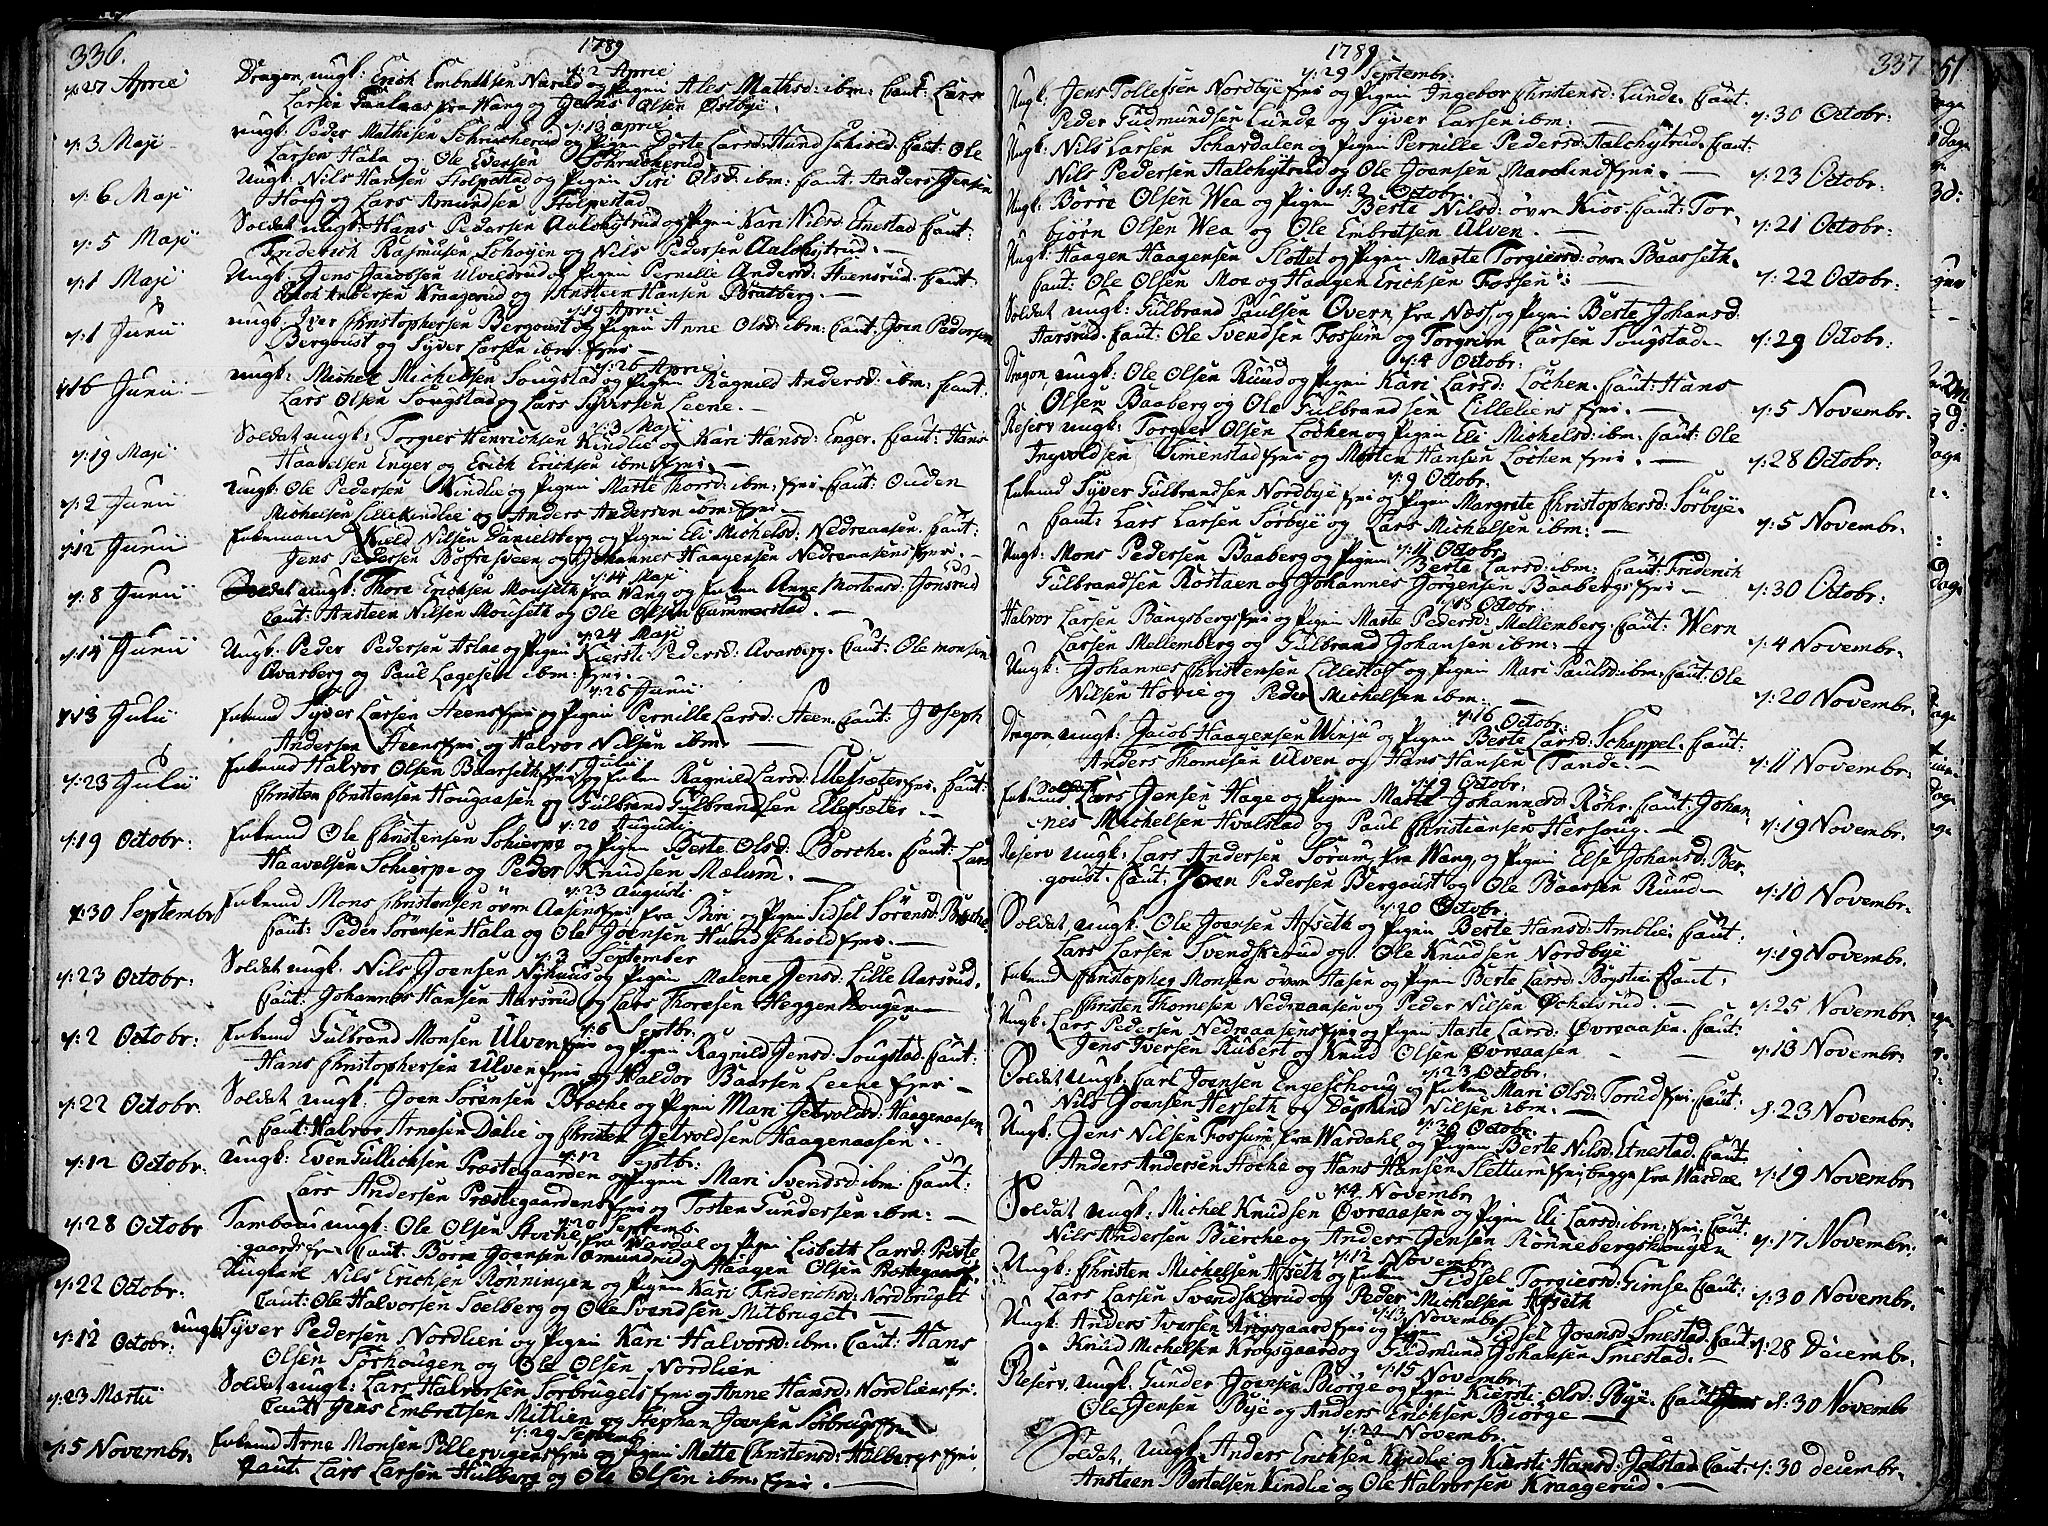 336.
1789
d: 2 April
d: 27 April
Dragon ungk: Erich Embretsen Nærlid og Pigen Ales Mathsd: ibm: Caut: Lars
Larsen fra Wang og Jens Olsen Østbye.
d: 13 April
d: 3 Maji
ungk: Peder Mathisen Schrucherud og Pigen Dorte Larsd: Hundschiold. Caut: Ole
Larsen Hala og Ole Evensen Schrucherud
d: 6 Maji
Ungk: Nils Hansen Stolpestad og Pigen Siri Olsd: ibm: Caut: Anders Jensen
Houg og Lars Amundsen Stolpestad
d: 5 Maji
Soldat ungk: Hans Pedersen Aalchytrud og Pigen Kari Nilsd: Etnestad Caut:
Friderich Rasmusen Schøyen og Nils Pedersen Aalchytrud. —
d: 1 Maji
Ungk: Jens Jacobsen Ulvelsrud og Pigen Pernille Andersd: Haensrud. Caut:
Erich Andersen Kraagerud og Ansteen Hansen Bratberg. —
d: 19 April
d: 1 Junii
ungk: Iver Christophersen Bergoust og Pigen Anne Olsd: ibm: Caut: Joen Pedersen
Bergoust og Syver Larsen ibm: Eyri —
d: 26 April
d: 16 Junii
ungk: Michel Michelsen Sougstad og Pigen Ragnild Andersd: ibm: Caut:
Lars Olsen Sougstad og Lars Syversen Leene. —
d: 3 Maji
d: 19 Maji
Soldat ungk: Torgier Henrichsen Kindlie og Kari Hansd: Enger. Caut: Hans
Haavelsen Enger og Erich Erichsen ibm: Eyri. —
d: 2 Junii
ungk: Ole Pedersen Kindlie og Pigen Marte Thorsd: ibm: Eyri. Caut: Ouden
Michelsen Lillekindlie og Anders Andersen ibm: Eyri —
d: 12 Junii
Enkemand Kield Nilsen Danielsberg og Pigen Eli Michelsd: Nedreaasen. Caut:
Jens Pedersen Bøfresveen og Johannes Haagensen Nedreaasens Eyri. —
d: 14 Maji
d: 8 Junii
Soldat ungk: Thore Erichsen Mouseth fra Wang og Enken Anne Mortensd: Jonsrud
Caut: Ansteen Nilsen Mouseth og Ole Olsen Cammerstad. —
d: 24 Maji
d: 14 Junii
Ungk: Peder Pedersen Aslae og Pigen Kiersti Pedersd: Avarberg. Caut: Ole Monsen
Avarberg og Paul Lagesen ibm: Eyri. —
d: 26 Junii
d: 13 Julii
Enkemd Syver Larsen Heens Eyri og Pigen Pernille Larsd: Heen. Caut: Joseph
Andersen Heens Eyri og Halvor Nilsen ibm: —
d: 5 Julii
d: 23 Julii
Enkemd Halvor Olsen Baarseth Eyri og Enken Ragnild Larsd: Ellefsæter Eyri. Caut:
Christen Christensen Hougaasen og Gulbrand Gulbrandsen Ellefsæter. —
d: 20 Augusti
d: 19 Octobr:
Enkemd Ole Christensen Schierpe og Pigen Berte Olsd: Borche. Caut: Lars
Haavelsen Schierpe og Peder Knudsen Mælum. —
d: 23 Augusti
d: 30 Septembr
Enkemd Mons Christensen øvre Aasens Eyri fra Biri og Pigen Sidsel Sørensd: Borche
Caut: Peder Sørensen Hala og Ole Joensen Hundschiold Eyri. —
d: 3 September
d: 23 Octobr:
Soldat ungk. Nils Joensen Nyhuus og Pigen Malene Jensd: Lille Aarsrud.
Caut: Johannes Hansen Aarsrud og Lars Thoresen Heggenhougen —
d: 6 Septbr.
d: 2 Octobr:
Enkemd Gulbrand Monsen Ulven Eyri og Pigen Ragnild Jensd: Sougstad. Caut:
Hans Christophersen Ulven Eyri og Haldor Baarsen Leene Eyri —
d: 22 Octobr.
Soldat ungk. Joen Sørensen Bræche og Pigen Mari Jetvoldsd: Haagenaasen
Caut: Halvor Arnesen Dalie og Christen Jetvoldsen Haagenaasen.
d: 12 Septbr:
d: 12 Octobr:
ungk: Even Gullichsen Præstegaarden og Pigen Mari Svendsd: ibm: Caut:
Lars Andersen Præstegaardens Eyri og Tosten Gundersen ibm: —
d: 20 Septemb.
d: 28 Octobr
Tambour ungk: Ole Olsen Stoche fra Wardal og Pigen Lisbeth Larsd: Præste
gaards Eyri Caut: Børre Joensen Omundrud og Haagen Olsen Præstegaard
d: 22 Octobr:
Ungkarl Nils Erichsen Rønningen og Pigen Kari Friderichsd: Nordbruget
Caut: Ole Halvorsen Soelberg og Ole Svendsen Mitbruget —
d: 12 Octobr:
ungk: Syver Pedersen Nordlien og Pigen Kari Halvorsd: ibm: Caut: Hans
Olsen Torhougen og Ole Olsen Nordlien
d: 23 Martii
Soldat ungk: Lars Halvorsen Sorbrugets Eyri og Anne Hansd: Nordliens Eyri
Caut: Jens Embretsen Mitlien og Stephan Joensen Sørbrugs Eyri
d: 29 Septembr
d: 5 Novembr.
Enkemd Arne Monsen Pillervigens Eyri og Pigen Mette Christensd: Hulbergs Eyri
Caut: Lars Larsen Hulberg og Ole Olsen ibm: Eyri. —
1789
337
d: 29 Septembr:
Ungk: Jens Tollefsen Nordbye Eyri og Pigen Ingebor Christensd: Lunde. Caut:
Peder Gudmundsen Lunde og Syver Larsen ibm: —
d: 30 Octobr:
Ungk: Nils Larsen Schardalen og Pigen Pernille Pedersd: Aalchytrud. Caut:
Nils Pedersen Aalchytrud og Ole Joensen Marchind Eyri. —
d: 23 Octobr:
d: 2 Octobr.
Ungk: Børre Olsen Wea og Pigen Berte Nilsd: øvre Kios. Caut: Tor-
bjørn Olsen Wea og Ole Embretsen Ulven. —
d: 21 Octobr:
Ungk: Haagen Haagensen Slottet og Pigen Marte Torgiersd: øvre Baarseth.
Caut: Ole Olsen Moe og Haagen Erichsen Fossen. —
d: 22 Octobr:
Soldat ungk: Gulbrand Paulsen Overn, fra Næss, og Pigen Berte Johansd:
Aarsrud. Caut: Ole Svendsen Fossum og Torgrim Larsen Sougstad.
d: 29 Octobr:
d: 4 Octobr:
Dragon, ungk: Ole Olsen Ruud og Pigen Kari Larsd: Løchen. Caut: Hans
Olsen Baaberg og Ole Gulbrandsen Lilleliens Eyri. —
d: 5 Novembr.
Reserv ungk: Torgier Olsen Løchen og Pigen Eli Michelsd: ibm: Caut: Ole
Ingvoldsen Simenstad Eyri og Morten Hansen Løchen Eyri. —
d: 28 Octobr:
d: 9 Octobr.
Enkemd Syver Gulbrandsen Nordbye Eyri og Pigen Margrete Christophersd: Sørbye.
Caut: Lars Larsen Sørbye og Lars Michelsen ibm: —
d: 5 Novembr:
d: 11 Octobr
Ungk: Mons Pedersen Baaberg og Pigen Berte Larsd: ibm: Caut: Friderich
Gulbrandsen Rostaen og Johannes Jørgensen Baabergs Eyri —
d: 30 Octobr:
d: 18 Octobr.
Halvor Larsen Bangsbergs Eyri og Pigen Marte Pedersd: Mellemberg. Caut: Wern
Larsen Mellemberg og Gulbrand Johansen ibm: —
d: 4 Novembr:
Ungk: Johannes Christensen Lillestof og Pigen Mari Paulsd: ibm: Caut: Ole
Nilsen Hovie og Peder Michelsen ibm: —
d: 20 Novembr.
d: 16 Octobr:
Dragon, ungk: Jacob Haagensen Winju og Pigen Berte Larsd: Schappel. Caut:
Anders Thomesen Ulven og Hans Hansen Tande. —
d: 11 Novembr:
d: 19 Octobr.
Soldat
Enkemd Lars Jensen Hage og Pigen Marte Johannesd: Røhr. Caut: Johan-
nes Michelsen Hvalstad og Paul Christiansen Hersoug. —
d: 19 Novembr.
Reserv ungk: Lars Andersen Sørum, fra Wang, og Pigen Else Johansd: Ber-
goust. Caut: Joen Pedersen Bergoust og Ole Baarsen Ruud —
d: 10 Novembr.
d: 20 Octobr.
Soldat, ungk: Ole Joensen Afseth og Pigen Berte Hansd: Amblie. Caut:
Lars Larsen Svendskerud og Ole Knudsen Nordbye
d: 19 Novembr.
Enkemd Christopher Monsen øvre Hasen og Pigen Berte Larsd: Bøgstie. Caut:
Christen Thomesen Nedreaasen og Peder Nilsen Øchelsrud. —
d: 25 Novembr:
Ungk. Lars Pedersen Nedreaasens Eyri og Pigen Aaste Larsd: Øvreaasen. Caut:
Jens Iversen Rubert og Knud Olsen Øvreaasen
d: 13 Novembr:
d: 23 Octobr.
Soldat, ungk. Carl Joensen Engeschoug og Enken Mari Olsd: Torud Eyri. Caut:
Nils Joensen Herseth og Daphind Nilsen ibm: —
d: 23 Novembr:
d: 30 Octobr.
Ungk: Jens Nilsen Fossum, fra Wardahl og Pigen Berte Nilsd. Etnestad. Caut:
Anders Andersen Stoche og Hans Hansen Slettum Eyri begge fra Wardal
d: 19 Novembr.
d: 4 Novembr
Soldat ungk: Michel Knudsen Øvreaasen og Pigen Eli Larsd: ibm: Eyri. Caut:
Nils Andersen Bierche og Anders Jensen Rønnebergshougen
d: 17 Novembr:
d: 12 Novembr:
Ungk: Christen Michelsen Afseth og Enken Sidsel Torgiersd: Gimse. Caut:
Lars Larsen Svendskerud og Peder Michelsen Afseth
d: 30 Novembr.
d: 13 Novembr
Ungk: Anders Iversen Krogsgaard Eyri og Pigen Sidsel Joensd: Smestad. Caut:
Knud Michelsen Krogsgaard og Gudmund Johansen Smestad. —
d: 28 Decembr.
d: 15 Novembr.
Reserv, ungk. Gunder Joensen Biørge og Pigen Kiersti Olsd: Bye. Caut: Jens
Ole Jensen Bye og Anders Erichsen Biørge —
d: 30 Novembr
d: 22 Novembr.
Soldat, ungk. Anders Erichsen Kindlie og Kiersti Hansd: Jølstad Caut:
Ansteen Bertelsen Kindlie og Ole Halvorsen Kraagerud. —
d: 30 decembr.
51